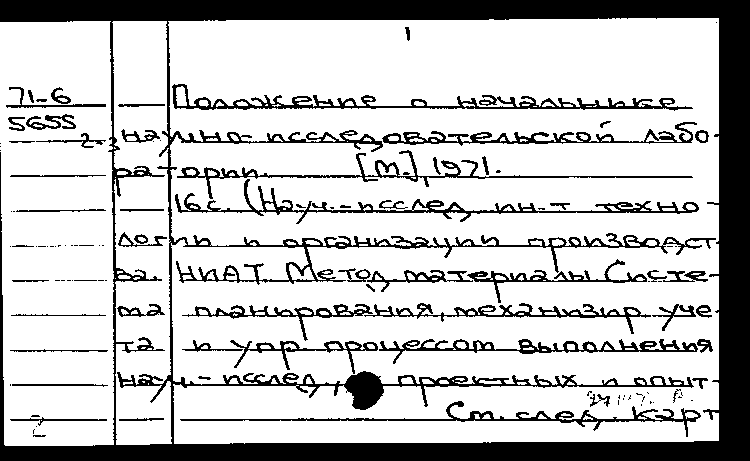 1
71-6
5655
2-3
Положение о начальнике
научно-исследовательской лабо-
ратории. [М.], 1971.
16 с. (Науч.-исслед. ин-т техно-
логии и организации производст-
ва. НИАТ. Метод. материалы Систе-
ма планирования, механизир. уче-
та и упр. процессом выполнения
науч.-исслед., проектных и опыт-
См. след. карт
2